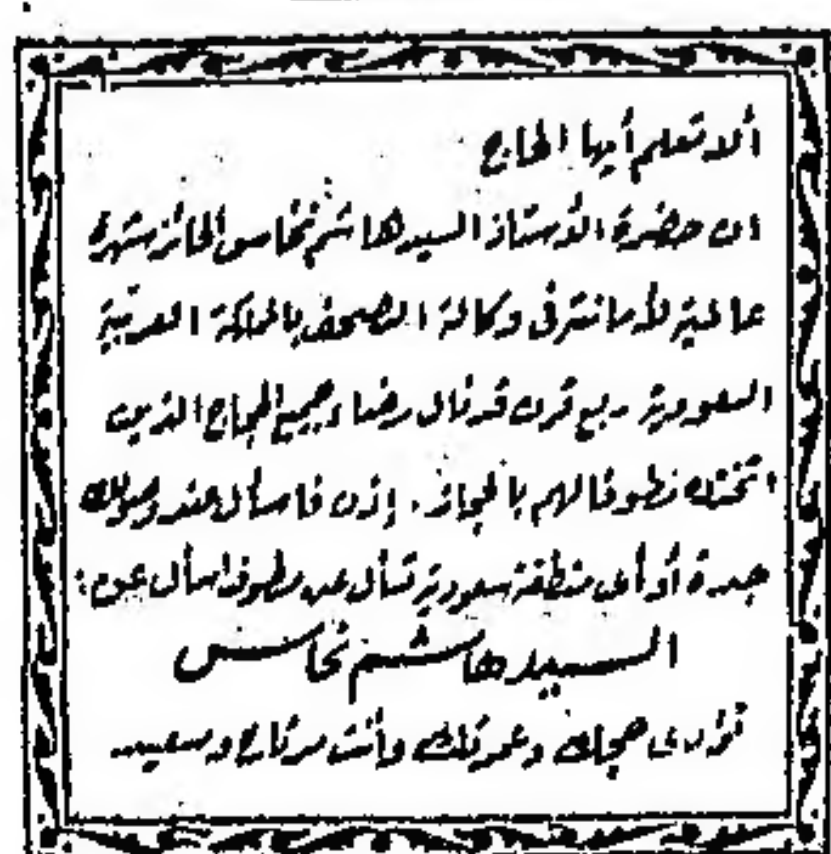 ألا تعلم أيها الحاج
ان حضرة الأستاذ السيد هاشم نحاس الحائز شهرة
عالمية لأمانته في وكالة الصحف بالمملكة العربية
السعودية ربع قرن قد نال رضا وجميع الحجاج الذين
اتخذوه مطوفا لهم بالحجاز . إذن فاسأل عند وصولك
جدة أو أى منطقة سعودية تسأل عن مطوف اسأل عن :
السيد هاشم نحاس
تؤدى حجك وعمرتك وأنت مرتاح وسعيد